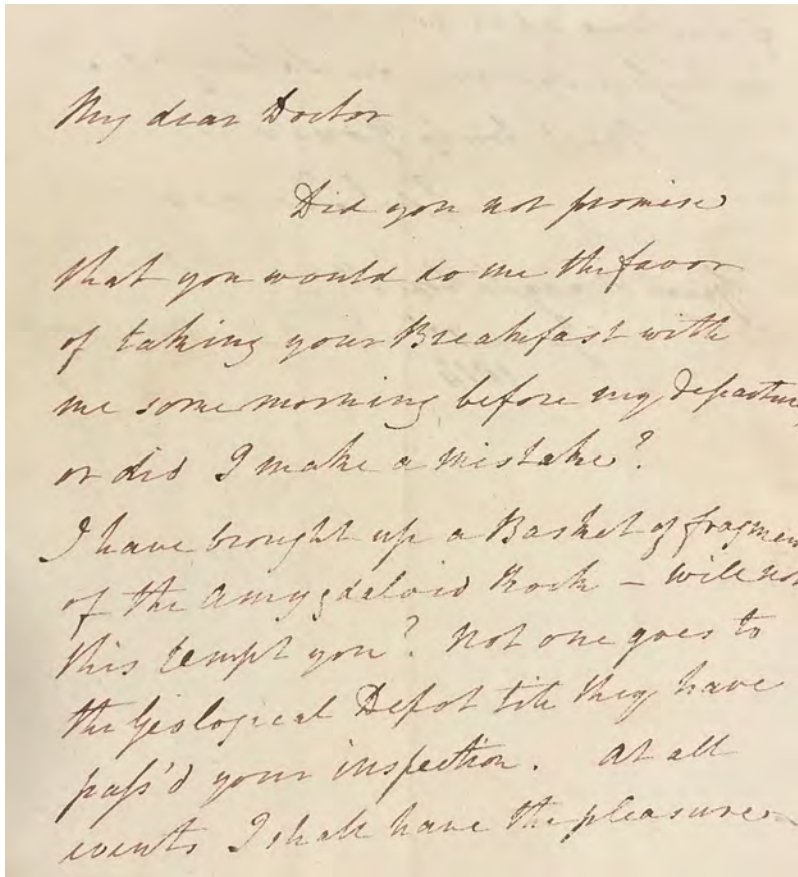 My dear Doctor
Did you not promise
that you would do me the favor
of taking your Breakfast with
me some morning before my departure
or did I make a mistake?
I have brought up a Basket of fragmen
of the Amygdaloid Rock – will not
this tempt you? Not one goes to
the Geological Depot till they have
pass'd your inspection. At all
events I shall have the pleasure